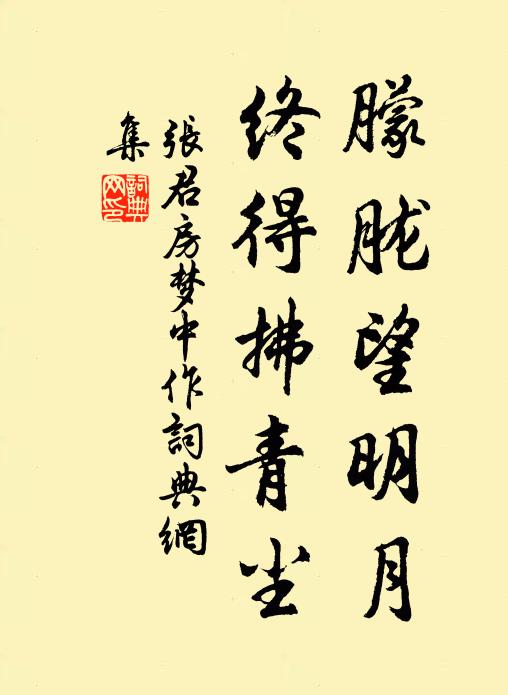 朦胧望明月
终得拂青尘
張君房梦中作詞典網
集
詞典网印